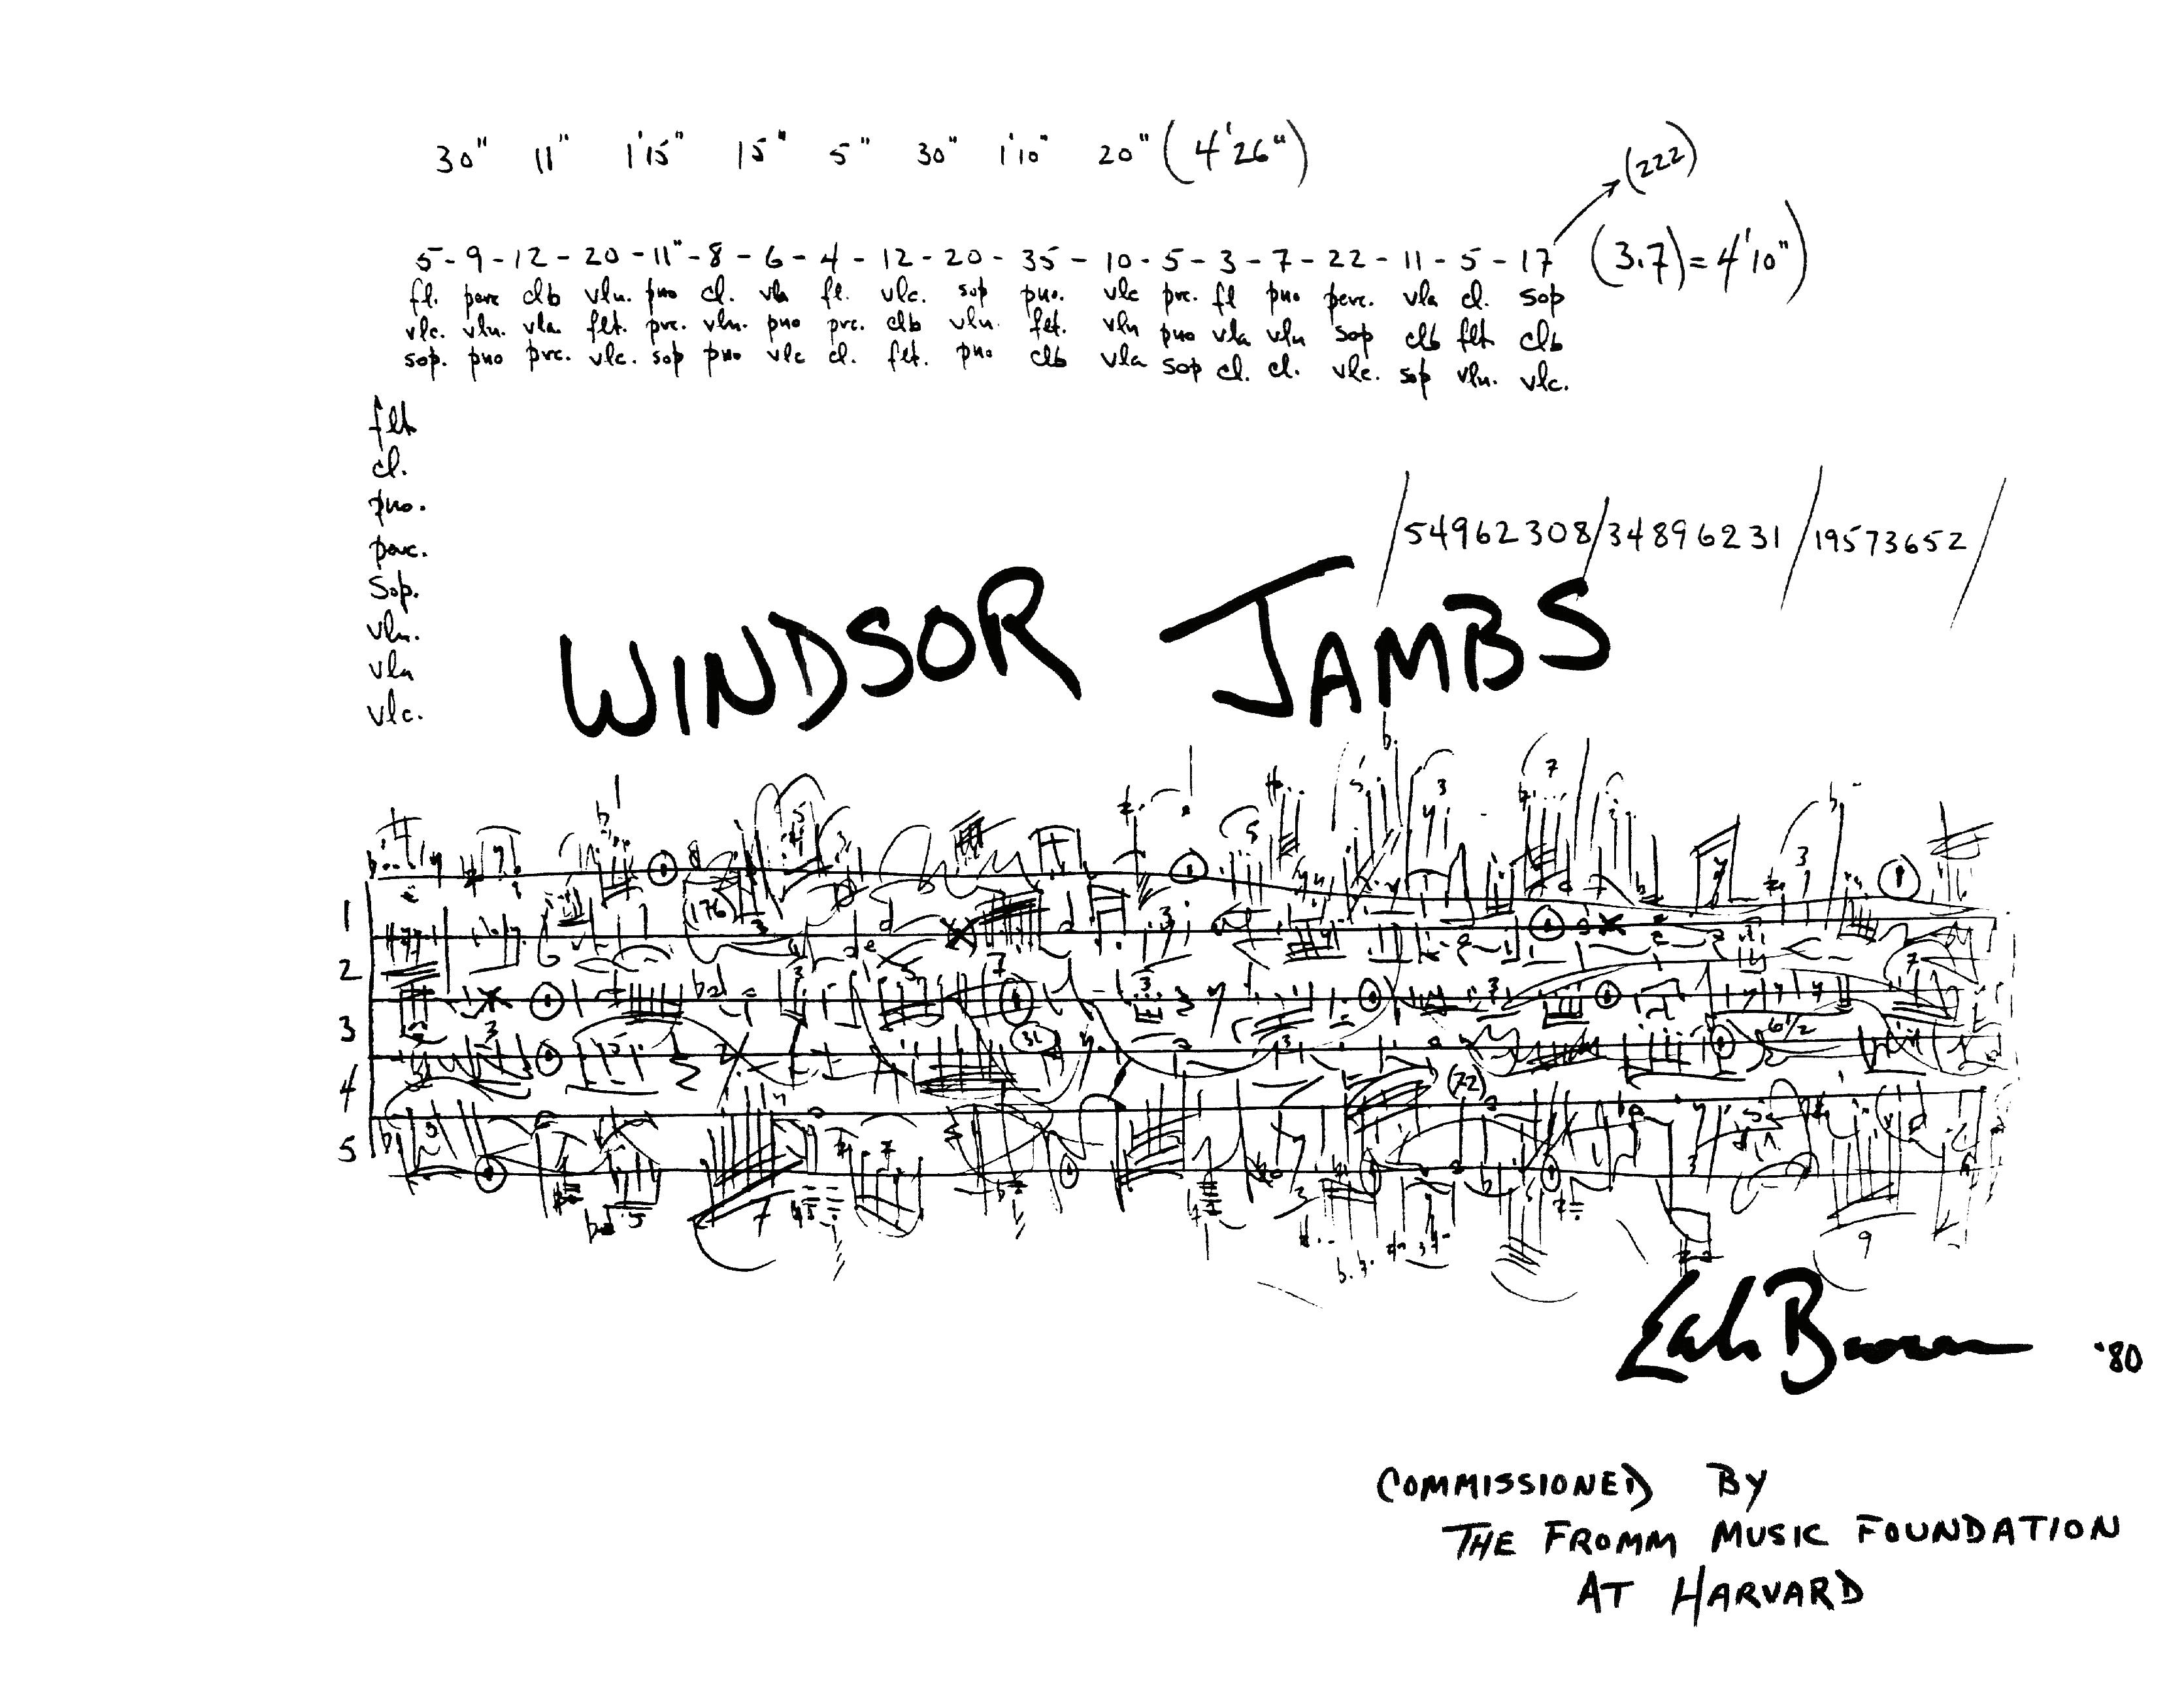 30" 11" 1'15" 15" 5" 30" 1'10" 20" (4'26")
(222)
5-9-12-20-11"-8-6-4-12-20-35-10-5-3-7-22-11-5-17 (3.7)=4'10"
fl. perc clb vln. pno cl. vla fl. vlc. sop pno. vlc prc. fl pno perc. vla cl. sop
vlc. vln. vla. flt. prc. vln. pno prc. clb vln. flt. vln pno vla vln sop clb flt clb
sop. pno prc. vlc. sop pno vlc cl. flt. pno clb vla sop cl. cl. vlc. sop vln. vlc.
flt
cl.
pno.
perc.
Sop.
vln.
vla
vlc.
/54962308/34896231/19573652/
WINDSOR JAMBS
1
2
3
4
5
(176)
(72)
6 1/2
Earle Brown '80
COMMISSIONED BY
THE FROMM MUSIC FOUNDATION
AT HARVARD